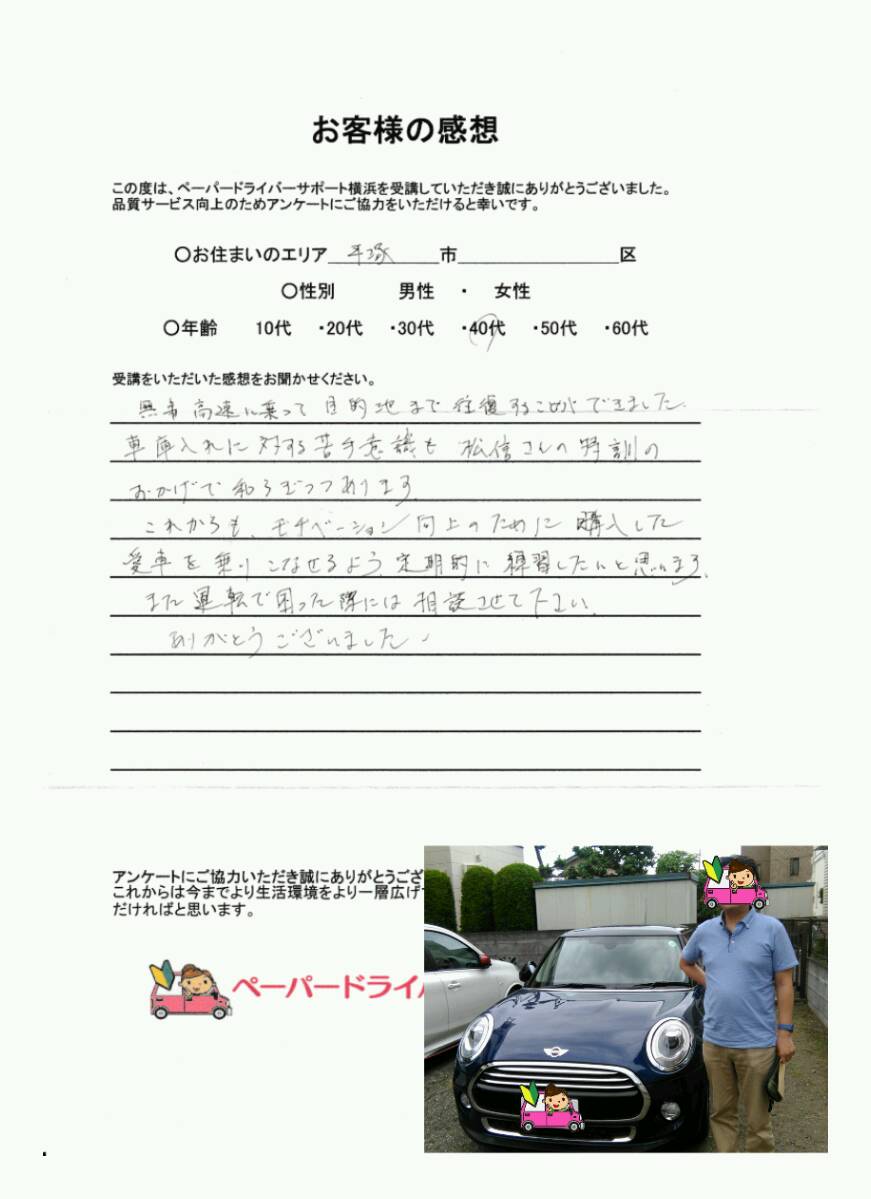 お客様の感想
この度は、ペーパードライバーサポート横浜を受講していただき誠にありがとうございました。
品質サービス向上のためアンケートにご協力をいただけると幸いです。
○お住まいのエリア 平塚 市 区
○性別 男性 ・ 女性
○年齢 10代 ・20代 ・30代 ・40代 ・50代 ・60代
受講をいただいた感想をお聞かせください。
無事 高速に乗って 目的地まで 往復することができました.
車庫入れに対する苦手意識も 松信さんの特訓の
おかげで和らぎつつあります.
これからも、モチベーション向上のために 購入した
愛車を乗りこなせるよう、定期的に練習したいと思います.
また運転で困った際には相談させて下さい.
ありがとうございました.
アンケートにご協力いただき誠にありがとうござ
これからは今までより生活環境をより一層広げ
だければと思います。
ペーパードライ